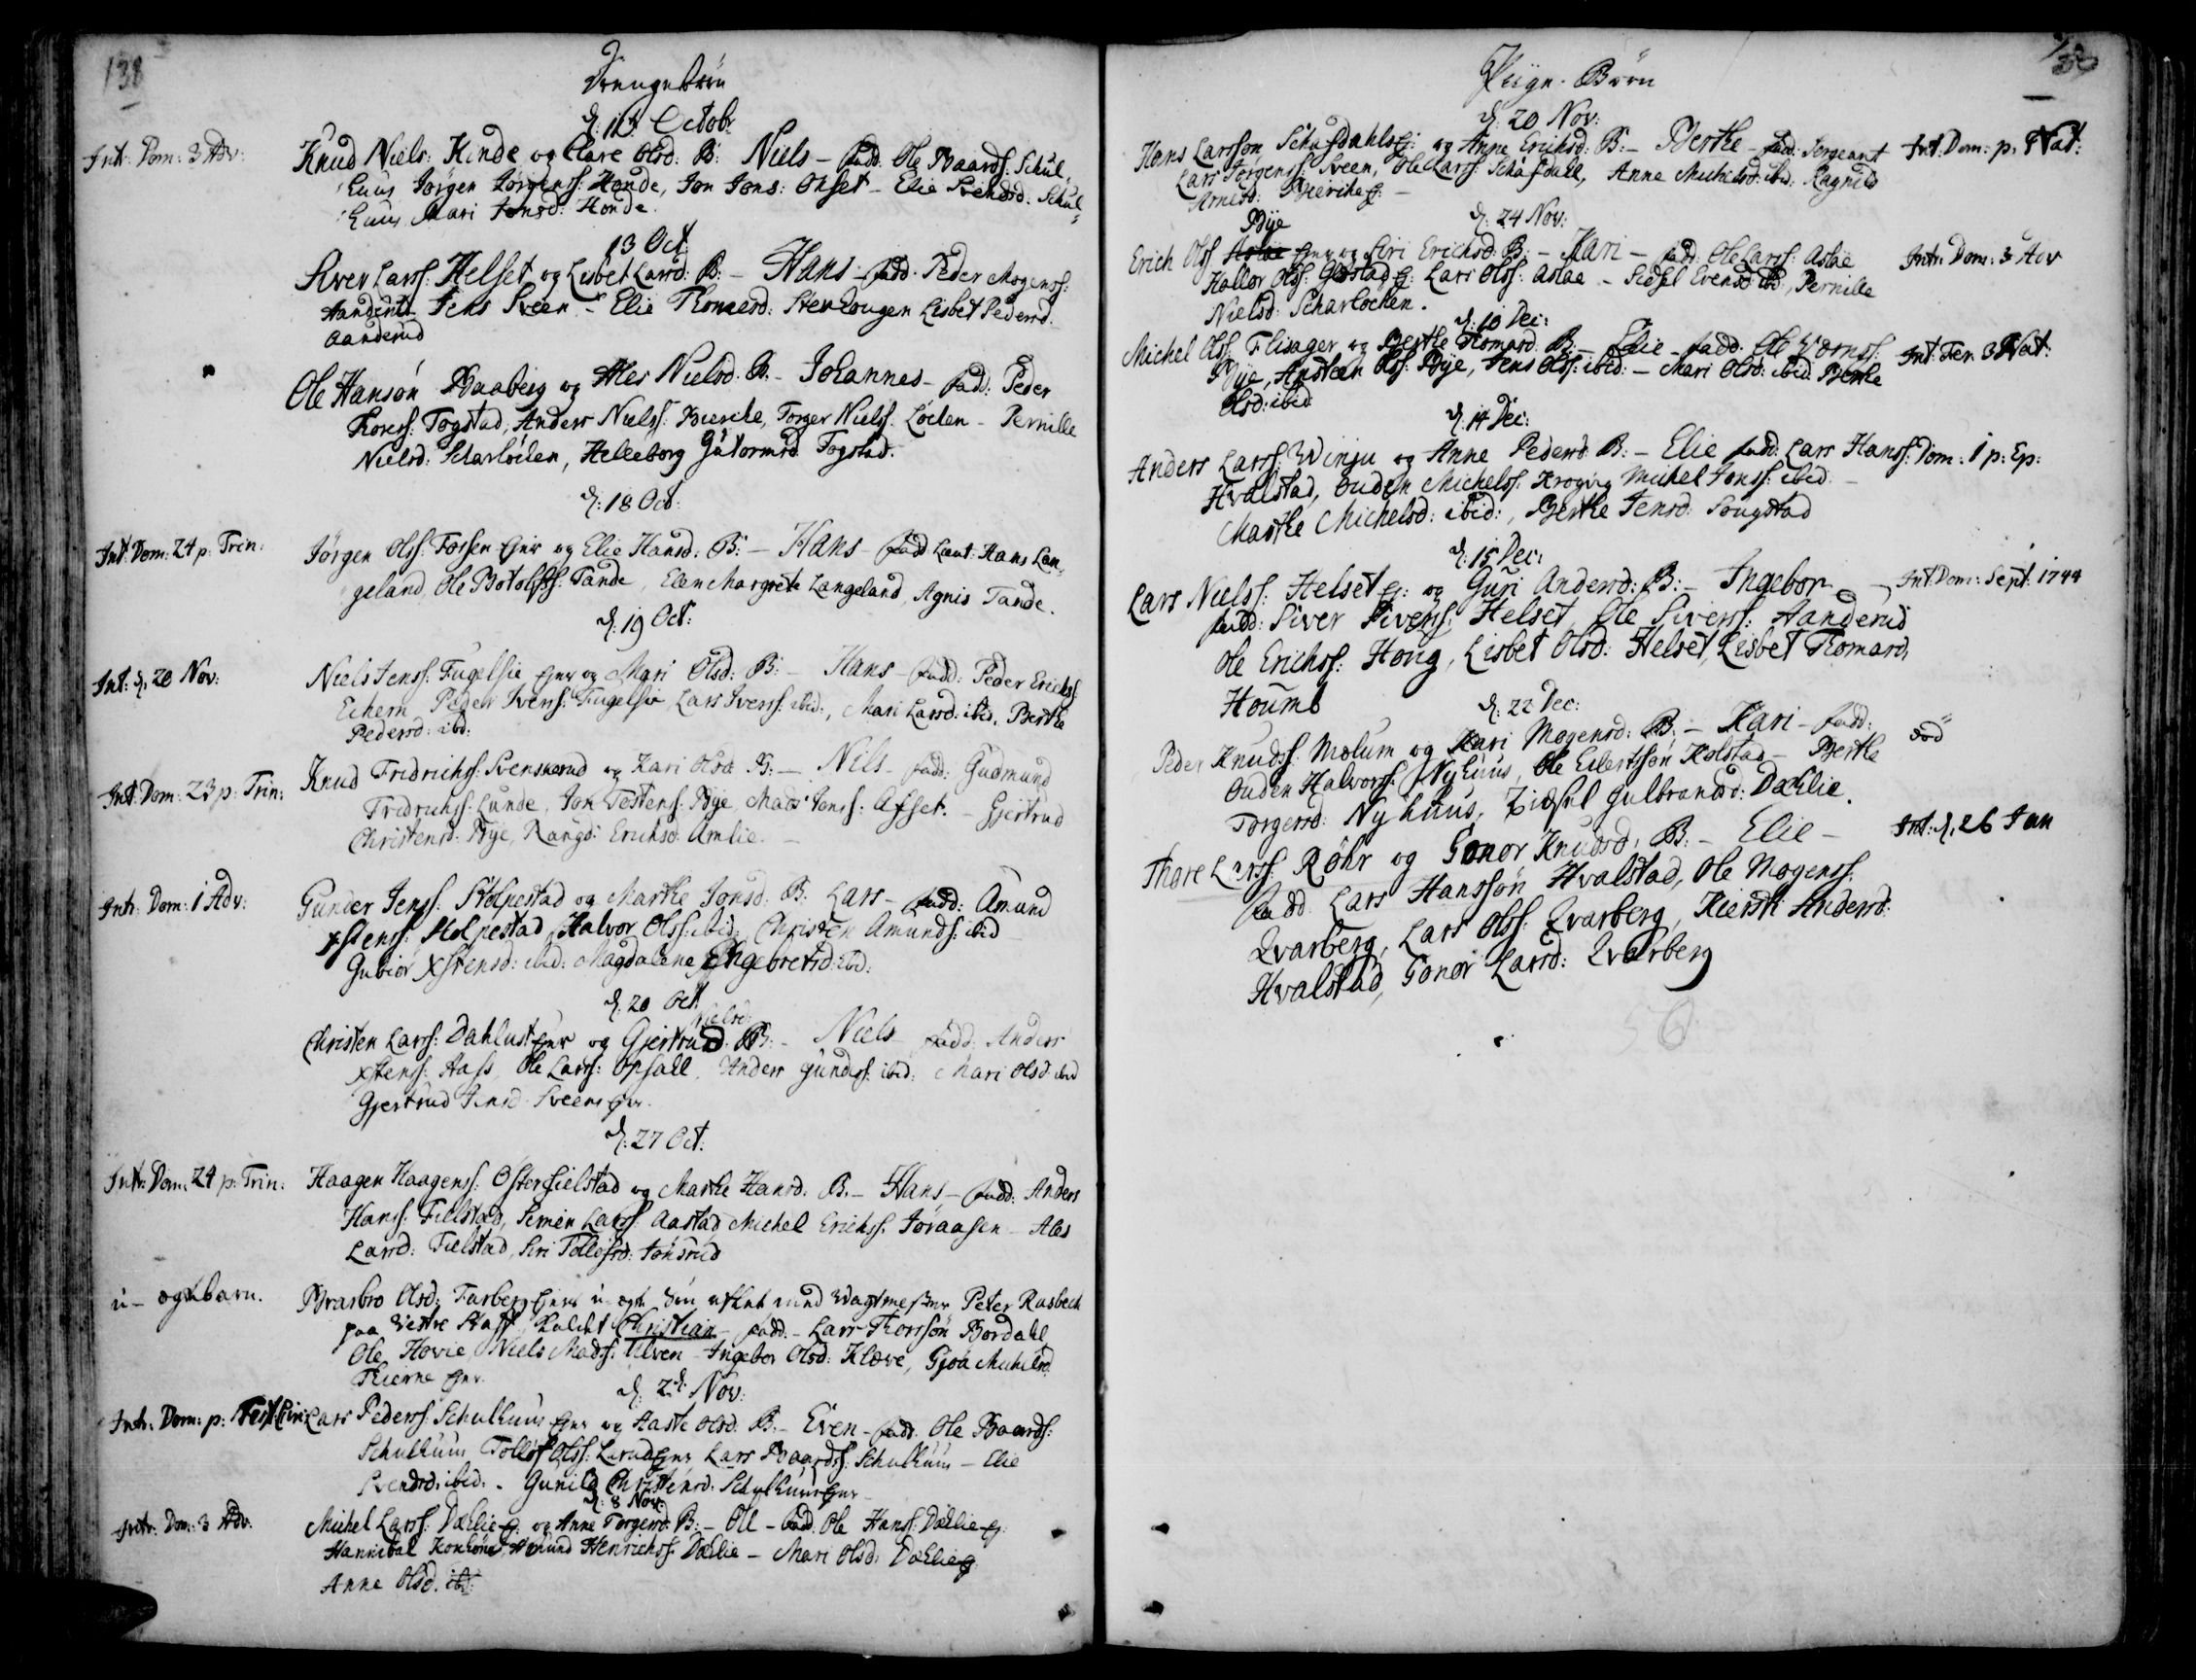 138
Drengebørn
d: 13 Octobr
Int: Dom: 3 Adv: Knud Niels: Hinde og Clare Olsd: B: Niels - fadd. Ole Baards: Schul-
huus Jørgen Jørgenss: Honde, Jon Jons: Onset - Elie Svendsd. Schul-
huus Mari Jonsd: Honde.
13 Oct
Siver Larss: Helset og Lisbet Larsd: B: - Hans - fadd. Peder Mogenss:
Aanderud Jens Sveen - Elie Thomesd: Stenhougen Lisbet Pedersd.
Aanderud
Ole Hansøn Baaberg og Ales Nielsd. B. - Johannes - fadd: Peder
Thorss: Togstad, Anders Nielss: Bierche, Torger Nielss. Løchen - Pernille
Nielsd: Scharløchen, Helleborg Gutormsd. Fogstad.
d: 18 Oct:
Int: Dom: 24 p: Trin: Jørgen Olss: Forsen Ejer og Elie Hansd: B: - Hans - fadd Lieut: Hans Lan-
geland, Ole Botolfss: Tande, Elen Margrete Langeland, Agnis Tande.
d: 19 Oct:
Int: d. 20 Nov: Niels Jenss: Fugelsie Ejer og Mari Olsd: B: - Hans - fadd: Peder Erichss:
Echern Peder Ivers: Fugelsie, Lars Iverss: ibid:, Mari Larsd: ibid. Berthe
Pedersd: ibd:
Int: Dom: 23 p: Trin: Knud Fridrichss: Svenskerud og Kari Olsd B: - Nils - fadd: Gudmund
Fridrichss: Lunde, Jon Testens: Bye Mads Jonss: Afset. - Gjertrud
Christensd: Bye, Rangd: Erichsd: Amlie. -
Intr: Dom: 1 Adv: Gunder Jenss: Stolpestad og Marthe Jonsd: B: Lars - fadd: Amund
Xstenss: Stolpestad, Halvor Olss: ibid: Christen Amunds: ibid
Gubiør Xstensd: ibid: Magdalene Engebretsd: ibd:
d. 20 Oct
Nielsd:
Christen Larss: Dahlust Ejer og Gjertrud B: - Niels fadd: Anders
Xstenss: Aass, Ole Larss: Opsall, Anders Gunderss: ibid: Mari Olsd ibid
Gjertrud Jensd Sveens Ejer.
d: 27 Oct:
Intr: Dom: 24 p: Trin: Haagen Haagenss: Østerfielstad og Marthe Hansd. B. - Hans - fadd: Anders
Hanss: Fielstad, Simen Larss: Aastad, Michel Erichss. Joraasen - Ales
Larsd: Fielstad, Siri Tollefsd: Jonsrud
u- ægtebarn. Brasbro Olsd: Farberg Ejers u-ægte Søn aflet med Wagtmester Peter Rasbech
paa Vestre Kaldet Christian - fadd. - Lars Thorssøn Bordahl
Ole Hovie, Niels Madss: Ulven - Ingebor Olsd: Klæve, Gjoa Michelsd
Thierne Ejer.
d. 2d Nov:
Intr: Dom: p: Fest: Cir: Lars Pederss: Schulhuus Ejer og Aaste Olsd. B. - Even - fadd. Ole Baards:
Schulhuus Tollof Olss: Ejer Lars Baardss: Schulhuus - Elie
Svendsd: ibid: - Gunild Christensd. Schulhuus Ejer -
d: 8 Nov:
Intr: Dom: 3 Adv. Michel Larss: Dæhlie Ej: og Anne Torgersd B: - Ole - fadd. Ole Hanss: Dæhlie Ej:
Hannibal Amund Henrichss: Dæhlie - Mari Olsd. Dæhlie Ej
Anne Olsd. ibd:
139
Piige-Børn
d: 20 Nov:
Hans Larssøn Schafsdahls Ej: og Anne Erichsd: B: - Berthe - fadd: Sergeant Int: Dom: p: Nat:
Lars Jørgenss: Sveen, Ole Larss: Schafsdall, Anne Michelsd: ibid: Ragnild
Arnesd: Bierche Ej: -
d: 24 Nov:
Bye
Erich Olss Aslae Ejer og Siri Erichsd: B: - Kari - fadd: Ole Larss: Aslae Intr: Dom: 3 Adv
Hallor Olss: Gjestad Ej: Lars Olss: Aslae - Sidsel Evensd ibid, Pernille
Nielsd: Scharløchen.
d: 10 Dec:
Michel Olss: Flisager og Berthe Thomasd: B: - Elie - fadd: Ole Int: Fer: 3 Nat:
Bye, Austen Olss: Bye, Jens Olss: ibid: - Mari Olsd: ibid Berthe
Olsd: ibid
d: 14 Dec:
Anders Larss: Winju og Anne Pedersd: B: - Elie fadd: Lars Hanss: Dom: 1 p: Ep:
Hvalstad, Ouden Michelss: Krogvig Michel Jonss: ibid -
Marthe Michelsd: ibid:, Berthe Jensd: Sougstad
d: 15 Dec:
Lars Nielss: Helset Ej: og Guri Andersd: B: - Ingebor - Int: Dom: Sept: 1744
fadd: Siver Siverss: Helset, Ole Siverss: Aanderud
Ole Erichss: Houg, Lisbet Olsd: Helset, Lisbet Thomasd:
Houmb
d: 22 Dec:
Peder Knudss: Molum og Kari Mogensd: B: - Kari - fadd: død
Ouden Halvorss: Nyhuus, Ole Eilertssøn Kolstad - Berthe
Torgersd: Nyhuus, Zidsel Gulbrandsd: Dæhlie.
Thore Larss: Röhr og Gonor Knudsd: B: - Elie - Int: d. 26 Jan
fadd Lars Hanssøn Hvalstad, Ole Mogenss:
Qvarberg, Lars Olss: Qvarberg, Kiersti Andersd:
Hvalstad, Gonor Larsd: Qvarberg